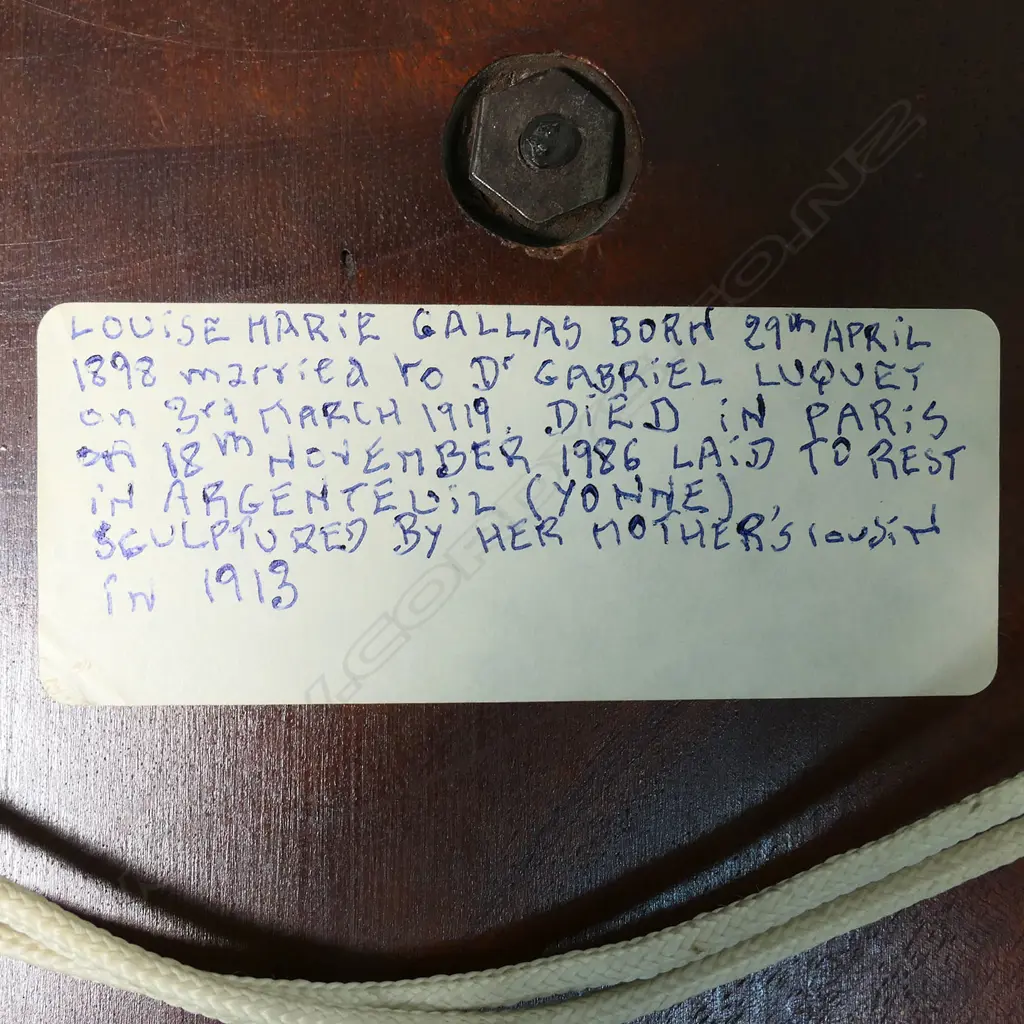 LOUiSE MARiE GALLAS BORN 29th APRiL
1898 married to Dr GABRiEL LUQUET
on 3rd MARCH 1919. DiED iN PARiS
on 18th NOVEMBER 1986 LAiD TO REST
iN ARGENTEUiL (YONNE)
SCULPTURED BY HER MOTHER'S cousin
in 1913